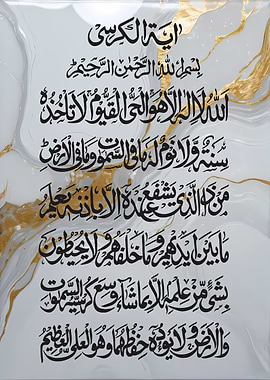 آية الكرسي
بسم الله الرحمن الرحيم
الله لا إله إلا هو الحي القيوم لا تأخذه
سنة ولا نوم له ما في السموت وما في الأرض
من ذا الذي يشفع عنده إلا بإذنه يعلم
ما بين أيديهم وما خلفهم ولا يحيطون
بشيء من علمه إلا بما شاء وسع كرسيه السموت
والأرض ولا يؤده حفظهما وهو العلي العظيم